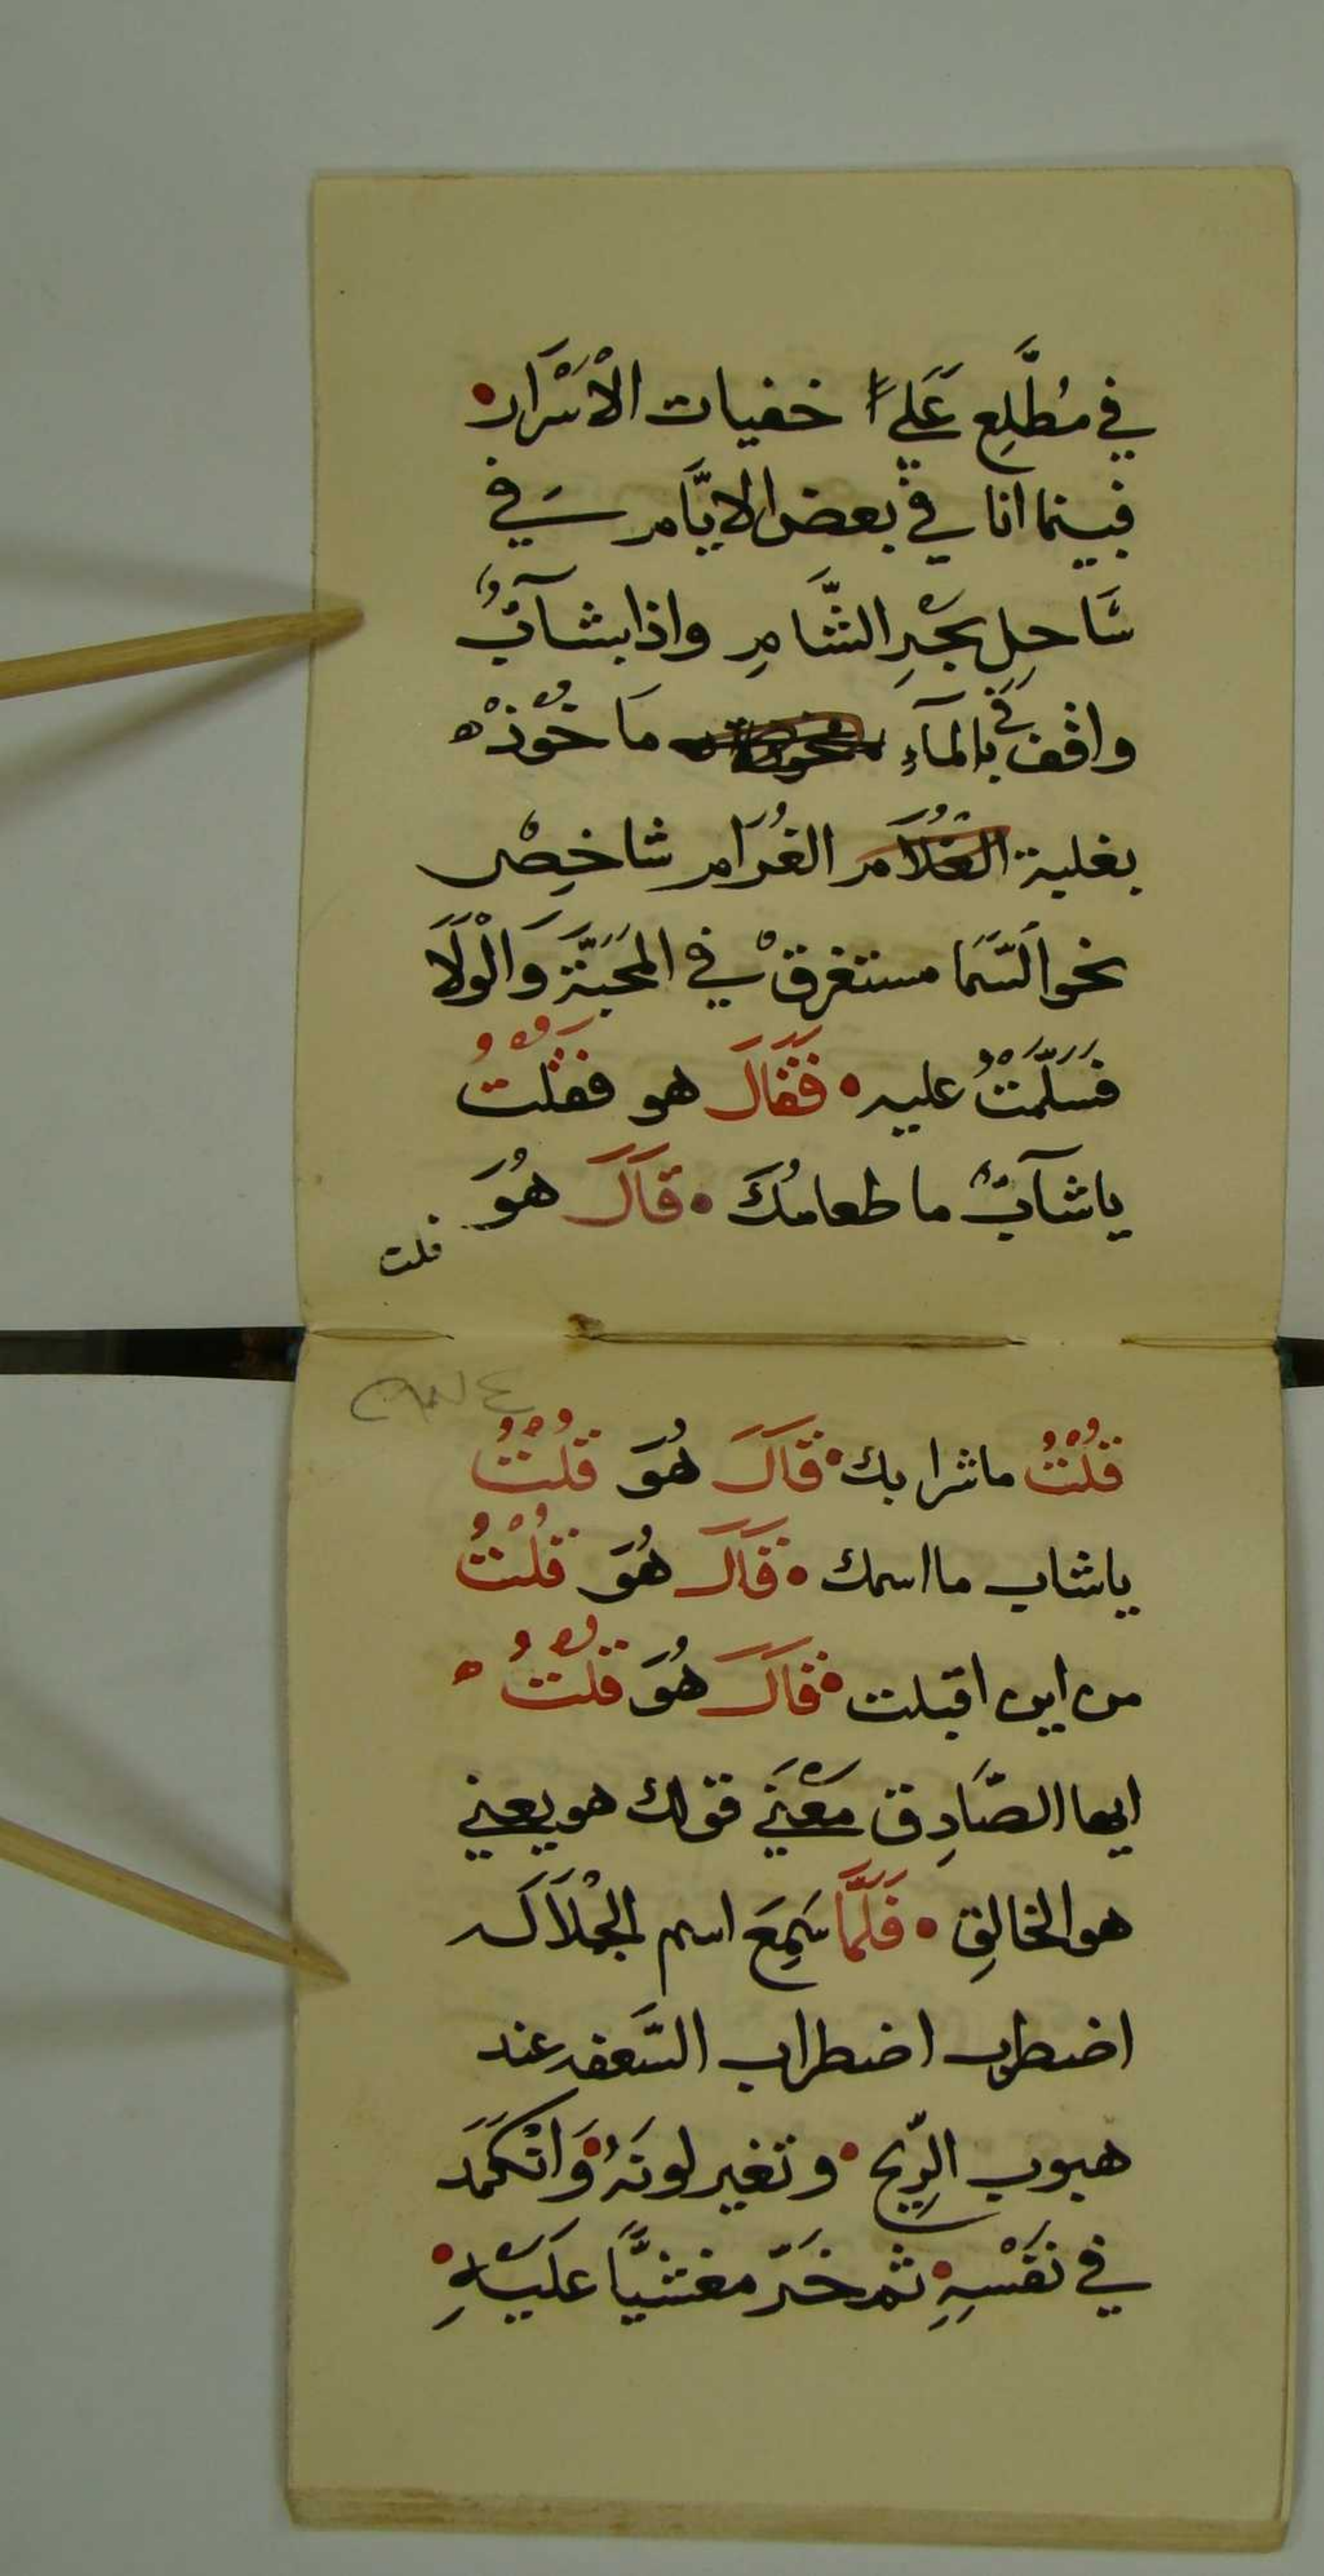 في مُطَّلِعِ عَلَي خفيات الْأَسْرَار
فبينما انا في بعض الايَّام في
سَاحِلِ بَحْرِ الشَّامِ واذا بشآبٌ
واقف في بالمآءِ مَا خُوْذْ
بغلبة الغُلَامر الغُرَآمر شاخِصْ
نحو السَّمَا مستغرقْ في المَحَبَّة وَالْوَلَا
فَسَلَّمْتُ عليه • فَقَالَ هو فَقُلْتُ
ياشآبٌ ما طعامُكَ • قَالَ هُوَ
قلت
قُلْتُ ماشرابك • قَالَ هُوَ قُلْتُ
ياشاب ما اسمك • قَالَ هُوَ قُلْتُ
من اين اقبلت • قَالَ هُوَ قُلْتُ
ايها الصَّادِق مَعْنَي قولك هو يعني
هو الخالِقِ • فَلَمَّا سَمِعَ اسم الجْلَالَه
اضطرب اضطراب السَّعفه عند
هبوب الرِّيح • وتغير لونَهُ • وَانْكَمَدَ
في نَفْسِهِ • ثم خَرّ مغشيَّا عَلَيْهِ •